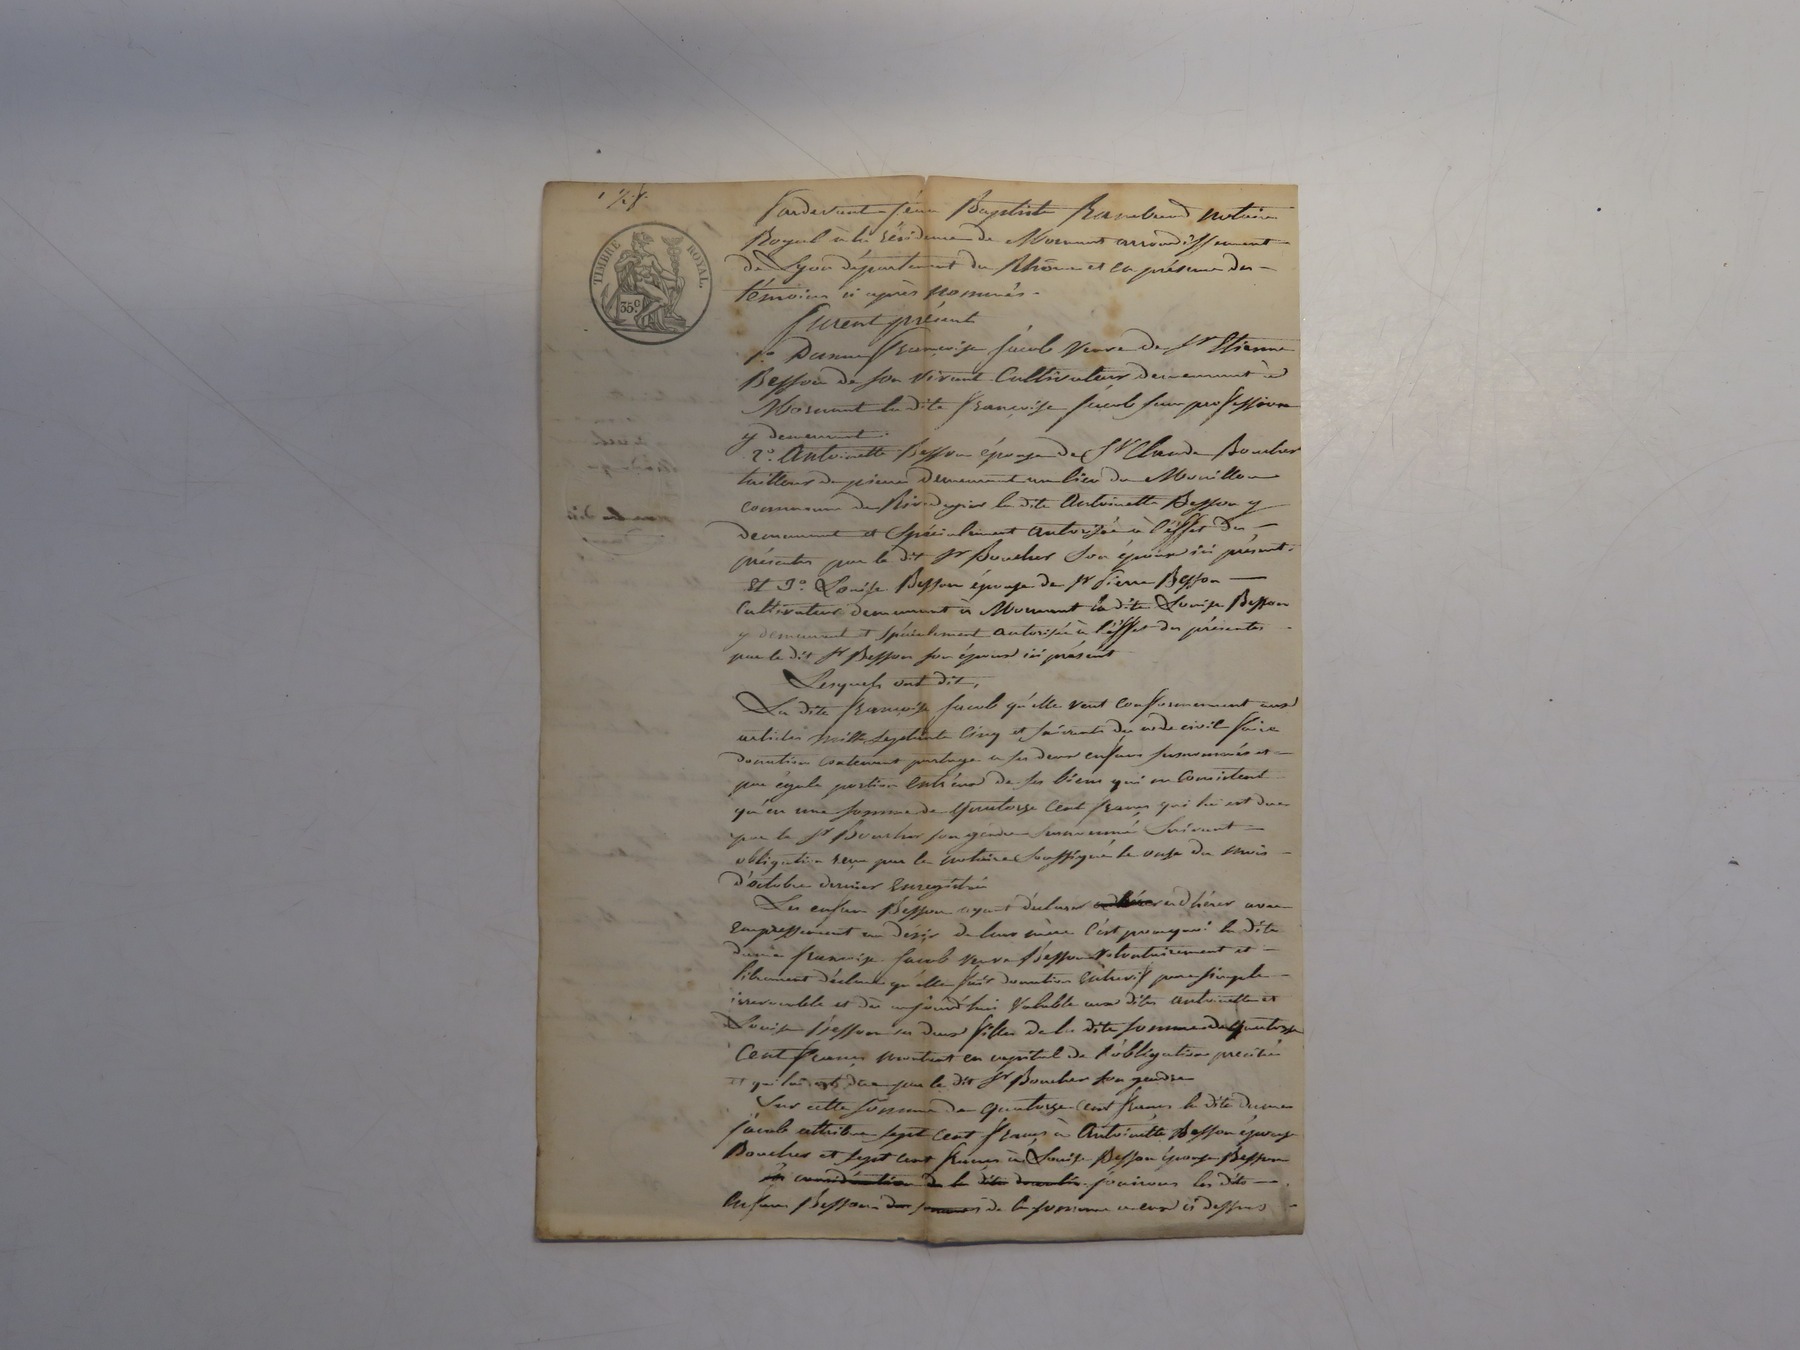 TIMBRE ROYAL.
35 c.
Pardevant Jean Baptiste notaire
Royal à la résidence de Mornant arrondissement
de Lyon département du Rhône et en présence des
témoins ci après nommés.
furent présent
1.° Dame françoise Jacob veuve de Sr Etienne
Besson de son vivant Cultivateur demeurant à
Mornant la dite françoise Jacob sans profession
y demeurant.
2.° Antoinette Besson épouse de Sr Claude Boucher
tailleur de pierre demeurant au lieu du Mouillon
commune de Rivedegier la dite Antoinette Besson y
demeurant et spécialement autorisée à l'éffet des
présentes par le dit Sr Boucher son époux ici présent.
Et 3.° Louise Besson épouse de Sr Pierre Besson
Cultivateur demeurant à Mornant la dite Louise Besson
y demeurant et spécialement autorisée à l'éffet des présentes
par le dit Sr Besson son époux ici présent
Lesquels ont dit,
La dite françoise Jacob qu'elle veut conformement aux
articles mille septante cinq et suivants du code civil faire
donation contenant partage a ses deux enfans susnommés et
par égale portion entr'eux de ses biens qui ne consistent
qu'en une somme de quatorze cent francs qui lui est due
par le Sr Boucher son gendre susnommé suivant
obligation reçue par le notaire soussigné le onze du mois
d'octobre dernier Enregistrée
Les enfans Besson ayant déclarer adhérer avec
Empressement au désir de leur mère C'est pourquoi la dite
dame françoise Jacob veuve Besson volontairement et
librement déclare qu'elle fait donation entrevifs pure simple
irrevocable et dès aujourd'hui valable aux dites antoinette et
Louise Besson ses deux filles de la dite somme de quatorze
Cent francs montant en capital de l'obligation precitée
et qui lui est due par le dit Sr Boucher son gendre
Sur cette somme de quatorze cent francs la dite dame
Jacob attribue sept cent francs à Antoinette Besson épouse
Boucher et sept cent francs à Louise Besson épouse Besson
En considération de la dite donation jouirons les dits
Enfans Besson de la somme a eux ci dessus